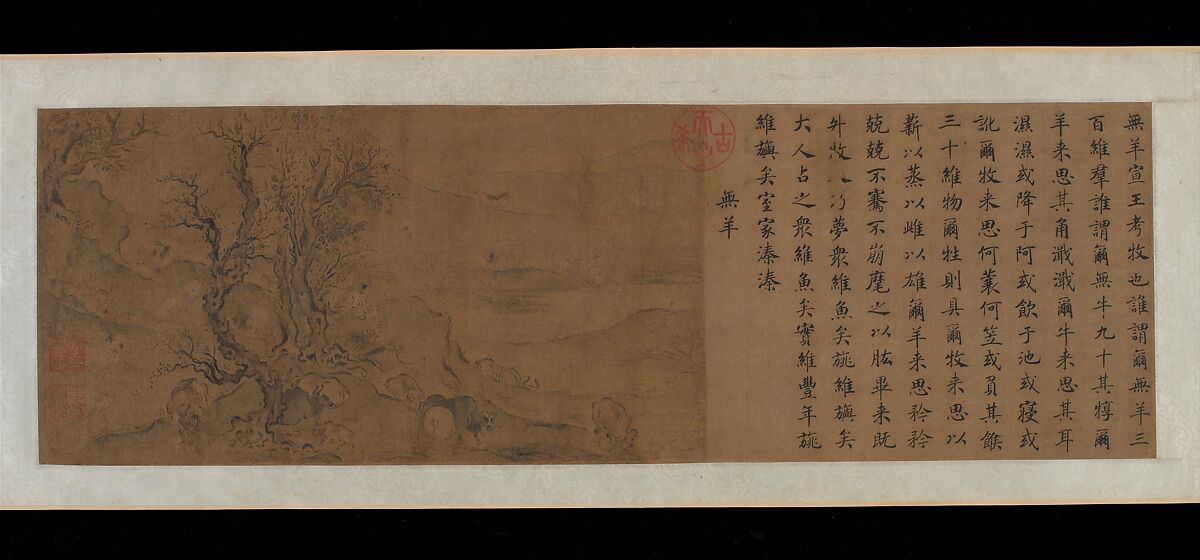 無羊宣王考牧也誰謂爾無羊三
百維羣誰謂爾無牛九十其犉爾
羊来思其角濈濈爾牛来思其耳
濕濕或降于阿或飲于池或寢或
訛爾牧来思何蓑何笠或負其餱
三十維物爾牲則具爾牧来思以
薪以蒸以雌以雄爾羊来思矜矜
兢兢不騫不崩麾之以肱畢来既
升牧人乃夢衆維魚矣旐維旟矣
大人占之衆維魚矣實維豐年旐
維旟矣室家溱溱
無羊
古希天子